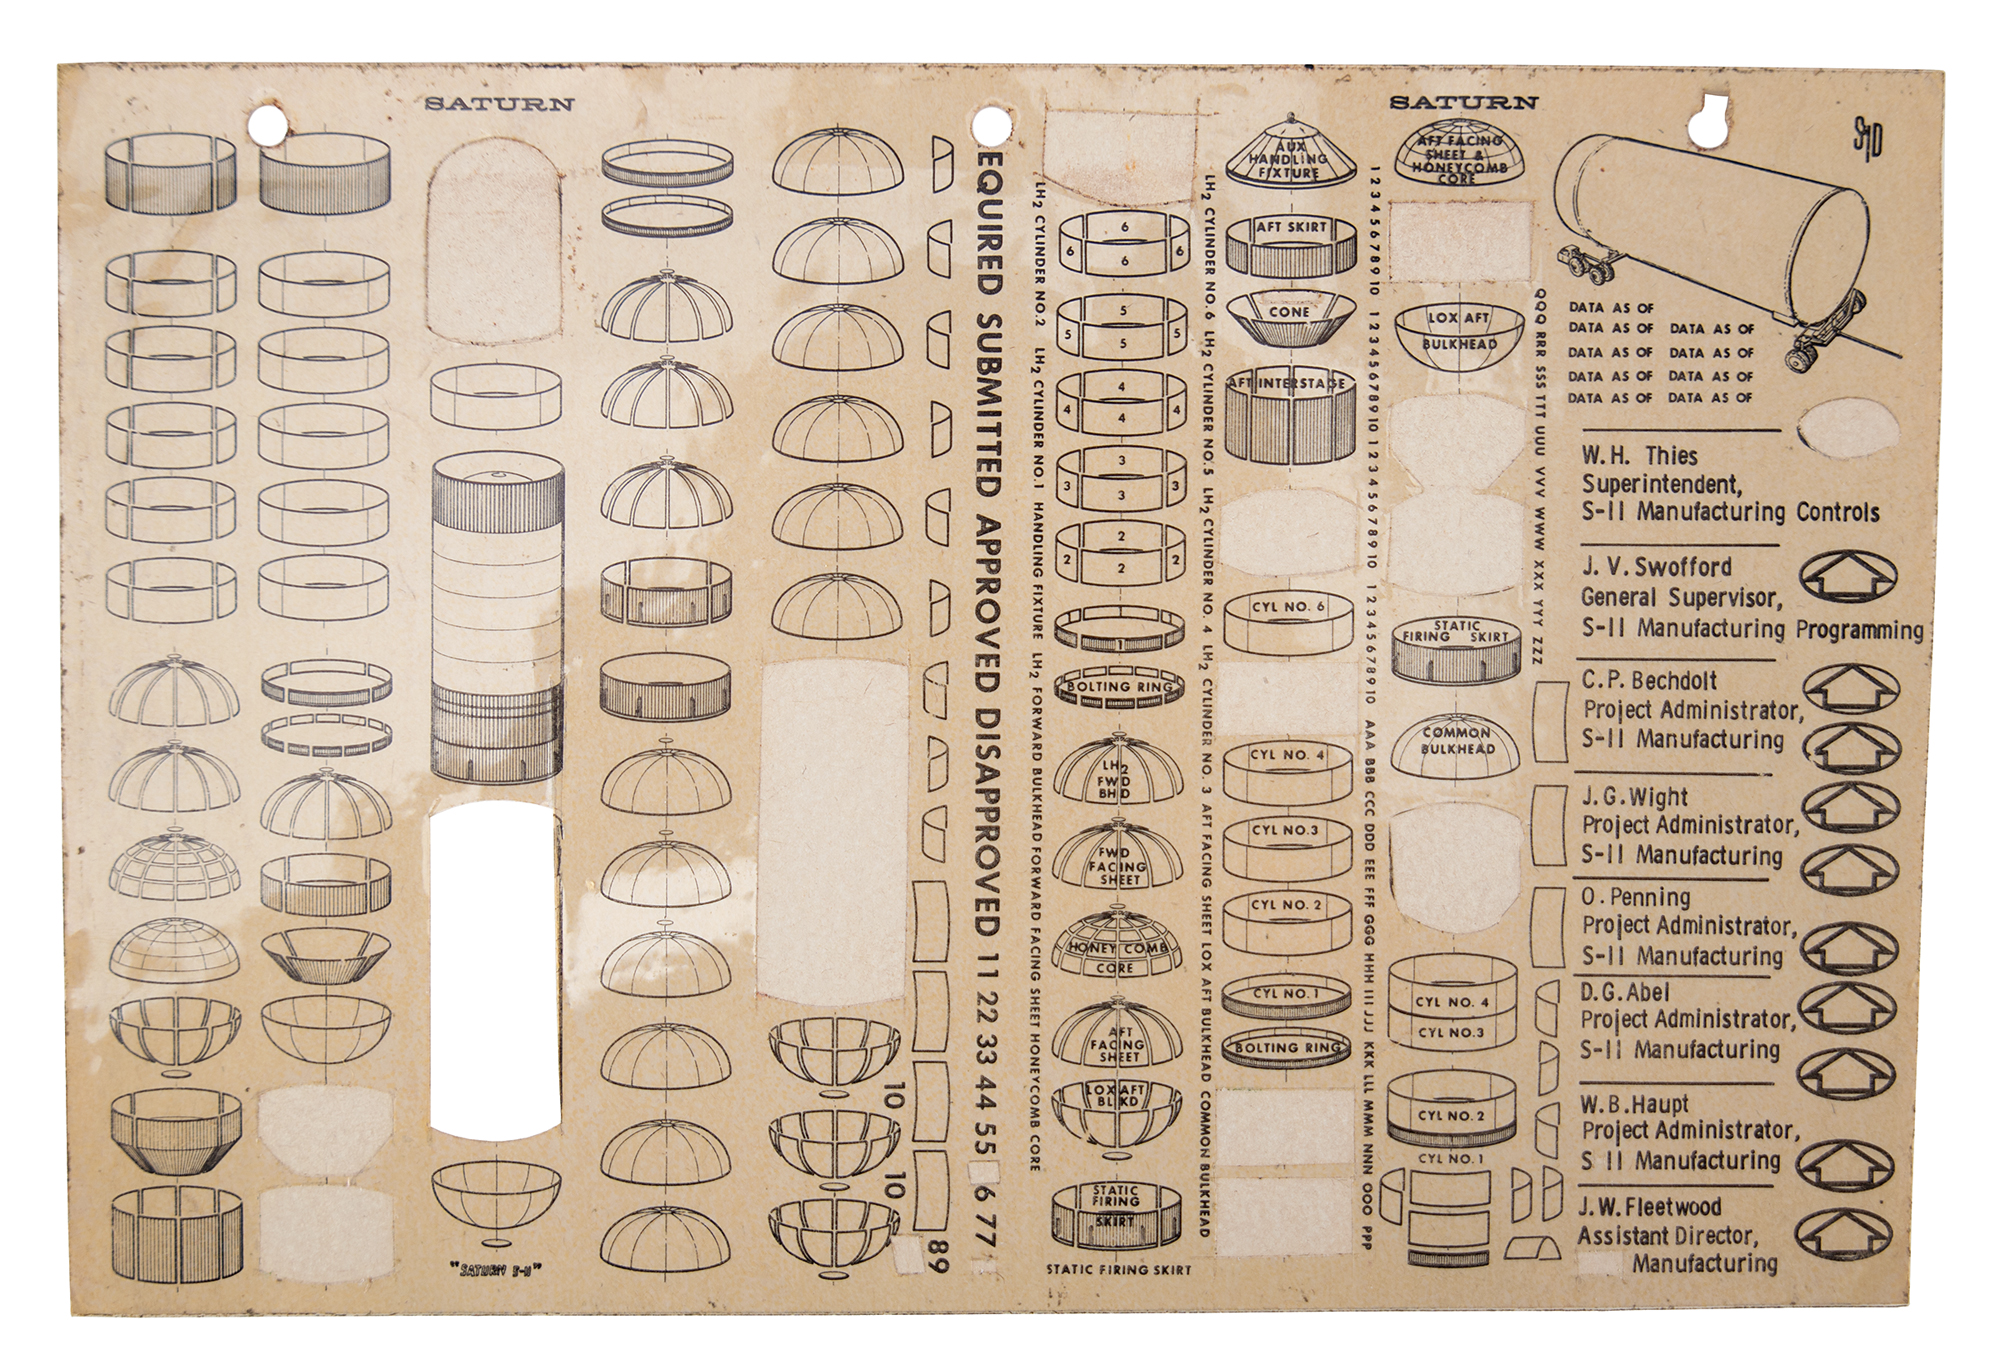 SATURN
"SATURN S-II"
10
10
89
EQUIRED SUBMITTED APPROVED DISAPPROVED 11 22 33 44 55 6 77
LH2 CYLINDER NO.2 LH2 CYLINDER NO.1 HANDLING FIXTURE LH2 FORWARD BULKHEAD FORWARD FACING SHEET HONEYCOMB CORE
6
6 6
6
5
5 5
5
4
4 4
4
3
3 3
3
2
2 2
2
1
BOLTING RING
LH2
FWD
BHD
FWD
FACING
SHEET
HONEY COMB
CORE
AFT
FACING
SHEET
LOX AFT
BLKD
STATIC
FIRING
SKIRT
STATIC FIRING SKIRT
LH2 CYLINDER NO.6 LH2 CYLINDER NO.5 LH2 CYLINDER NO. 4 LH2 CYLINDER NO. 3 AFT FACING SHEET LOX AFT BULKHEAD COMMON BULKHEAD
AUX
HANDLING
FIXTURE
AFT SKIRT
CONE
AFT INTERSTAGE
CYL NO. 6
CYL NO. 4
CYL NO.3
CYL NO. 2
CYL NO.1
BOLTING RING
1 2 3 4 5 6 7 8 9 10 1 2 3 4 5 6 7 8 9 10 1 2 3 4 5 6 7 8 9 10 1 2 3 4 5 6 7 8 9 10 AAA BBB CCC DDD EEE FFF GGG HHH III JJJ KKK LLL MMM NNN OOO PPP
SATURN
AFT FACING
SHEET &
HONEYCOMB
CORE
LOX AFT
BULKHEAD
STATIC
FIRING SKIRT
COMMON
BULKHEAD
CYL NO. 4
CYL NO.3
CYL NO. 2
CYL NO.1
QQQ RRR SSS TTT UUU VVV WWW XXX YYY ZZZ
S1D
DATA AS OF
DATA AS OF DATA AS OF
DATA AS OF DATA AS OF
DATA AS OF DATA AS OF
DATA AS OF DATA AS OF
W.H. Thies
Superintendent,
S-II Manufacturing Controls
J. V. Swofford
General Supervisor,
S-II Manufacturing Programming
C.P. Bechdolt
Project Administrator,
S-II Manufacturing
J.G. Wight
Project Administrator,
S-II Manufacturing
O. Penning
Project Administrator,
S-II Manufacturing
D.G. Abel
Project Administrator,
S-II Manufacturing
W.B. Haupt
Project Administrator,
S II Manufacturing
J.W. Fleetwood
Assistant Director,
Manufacturing